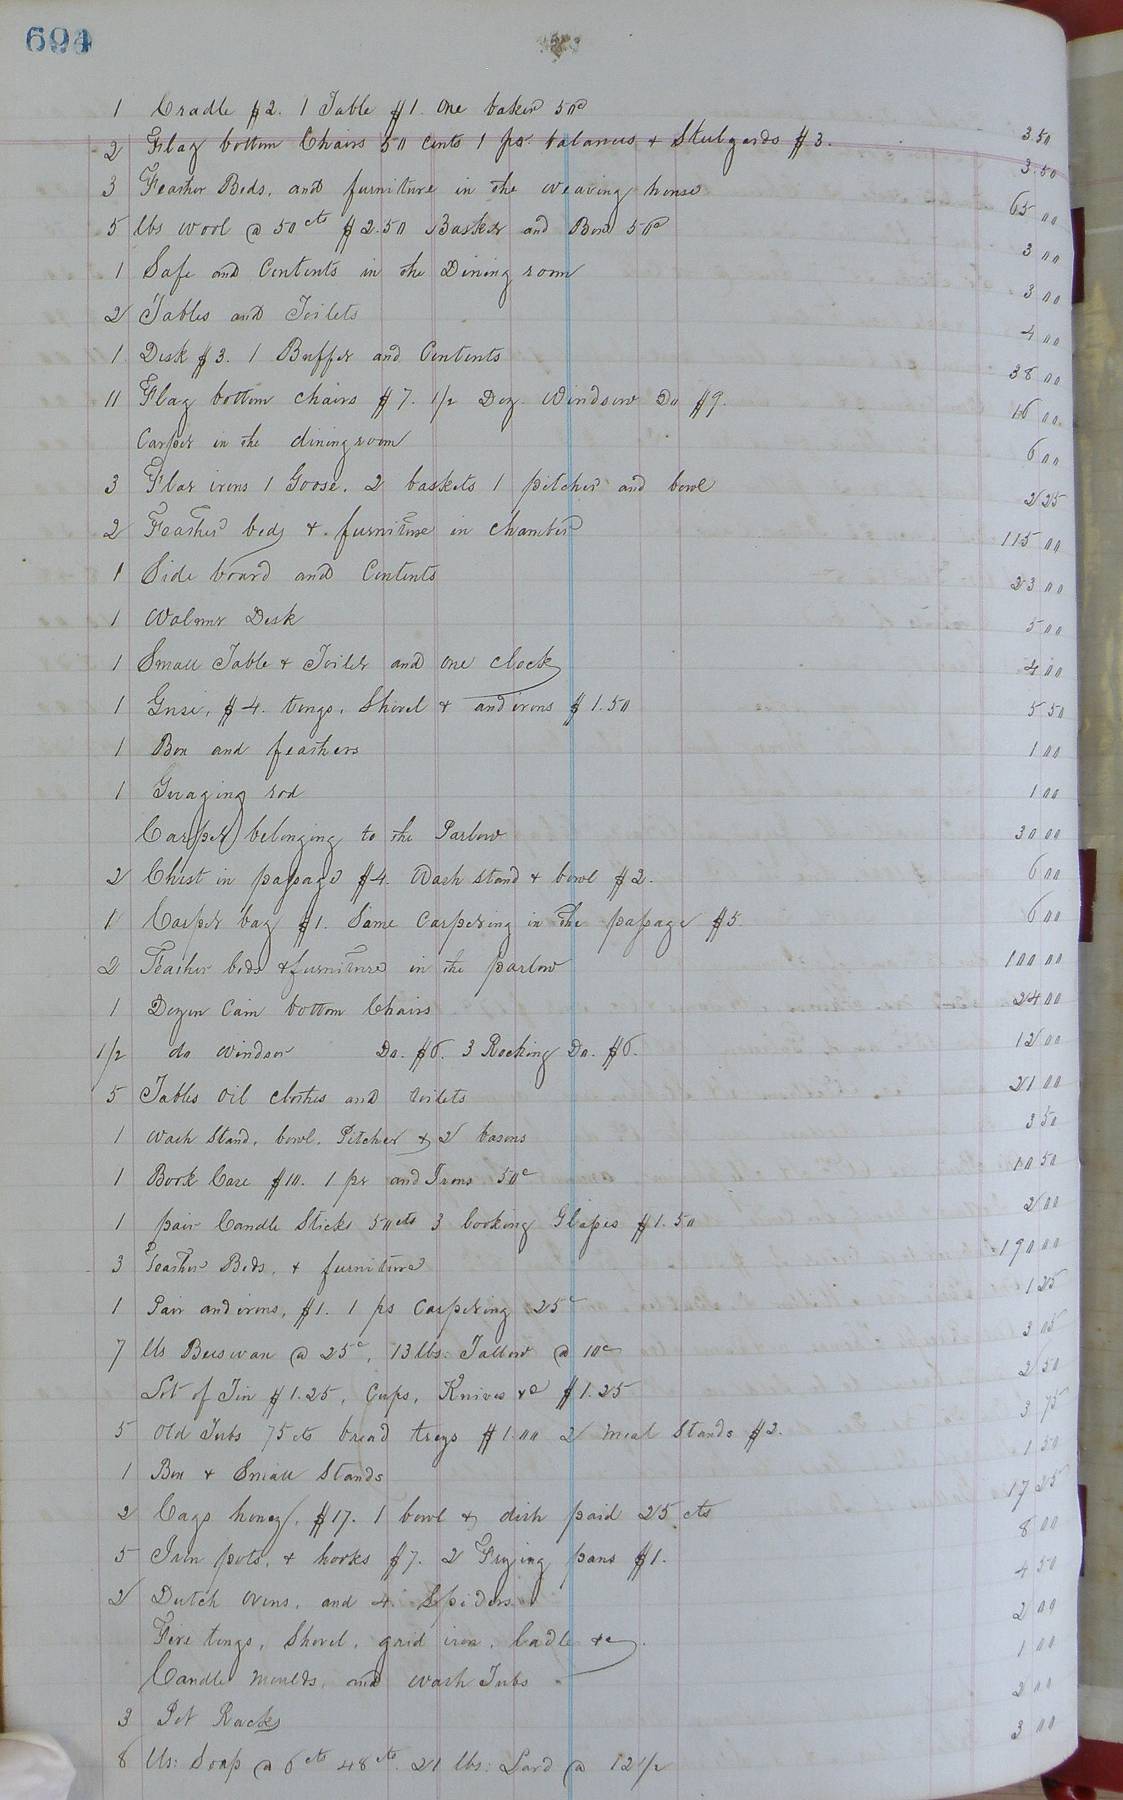 694
1 Cradle $2. 1 Table $1. One baker 50c 3.50
2 Flag bottom Chairs 50 cents 1 pr. balances & Steelyards $3. 3.50
3 Feather Beds, and furniture in the weaving house 65 00
5 lbs wool @ 50 cts $2.50 Basket and Box 50c 3 00
1 Safe and Contents in the Dining room 3 00
2 Tables and Toilets 4 00
1 Desk $3. 1 Buffet and Contents 38 00
11 Flag bottom chairs $7. 1/2 Doz. Windsor Do $9. 16 00
Carpet in the diningroom 6 00
3 Flat irons 1 Goose. 2 baskets 1 pitcher and bowl 2 25
2 Feather beds & furniture in chamber 115 00
1 Side board and Contents 23 00
1 Walnut Desk 5 00
1 Small Table & Toilet and one clock 4 00
1 $4. tongs, Shovel & andirons $1.50 5 50
1 Box and feathers 1 00
1 Guaging rod 1 00
Carpet belonging to the Parlour 30 00
2 Chest in passage $4. Wash stand & bowl $2. 6 00
1 Carpet bag $1. Some Carpeting in the passage $5 6 00
2 Feather beds & furniture in the parlour 100 00
1 Dozen Cain bottom Chairs 24 00
1/2 do windsor Do. $6. 3 Rocking Do. $6. 12 00
5 Tables oil clothes and toilets 21 00
1 wash Stand, bowl. Pitcher & 2 basons 3 50
1 Book Case $10. 1 pr and Irons 50c 10 50
1 pair Candle Sticks 50cts 3 looking Glasses $1.50 2 00
3 Feather Beds, & furniture 190 00
1 Pair andirons, $1. 1 ps Carpeting 25c 1 25
7 lbs Beeswax @ 25c, 13 lbs: Tallow @ 10c 3 05
Lot of Tin $1.25, Cups, Knives &c $1.25 2 50
5 Old Tubs 75cts bread trays $1.00 2 Meal Stands $2. 3 75
1 Box & Small Stands 1 50
2 Cags honey, $17. 1 bowl & dish paid 25 cts 17 25
5 Iron pots, & hooks $7. 2 Frying pans $1. 8 00
2 Dutch ovens, and 4 Spiders 4 50
Fire tongs, Shovel, grid iron, Ladle &c. 2 00
Candle moulds, and wash Tubs 1 00
3 Pot Racks 2 00
8 lbs: Soap @ 6 cts 48 cts. 21 lbs: Lard @ 12 1/2 3 00